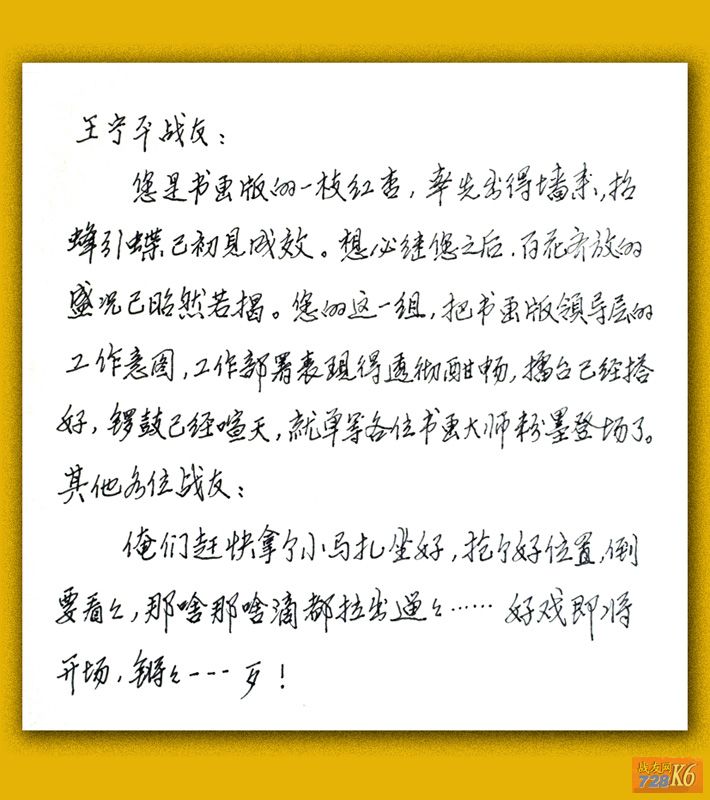 王宁平战友：
您是书画版的一枝红杏，率先出得墙来，招
蜂引蝶已初见成效。想必继您之后，百花齐放的
盛况已昭然若揭。您的这一组，把书画版领导层的
工作意图，工作部署表现得透彻酣畅，擂台已经搭
好，锣鼓已经喧天，就单等各位书画大师粉墨登场了。
其他各位战友：
俺们赶快拿个小马扎坐好，抢个好位置，倒
要看々，那啥那啥滴都拉出遛々…… 好戏即将
开场，锵々---歹！
战友网
728K6